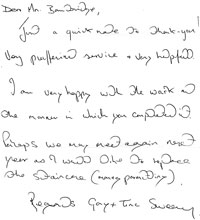 Dear Mr. Bainbridge,
Just a quick note to thank-you!
Very proffesional service + very helpful.
I am very happy with the work and
the manner in which you completed it.
Perhaps we may meet again next
year as I would like to replace
the staircase (money permitting).
Regards Gary + Tina Sweeney